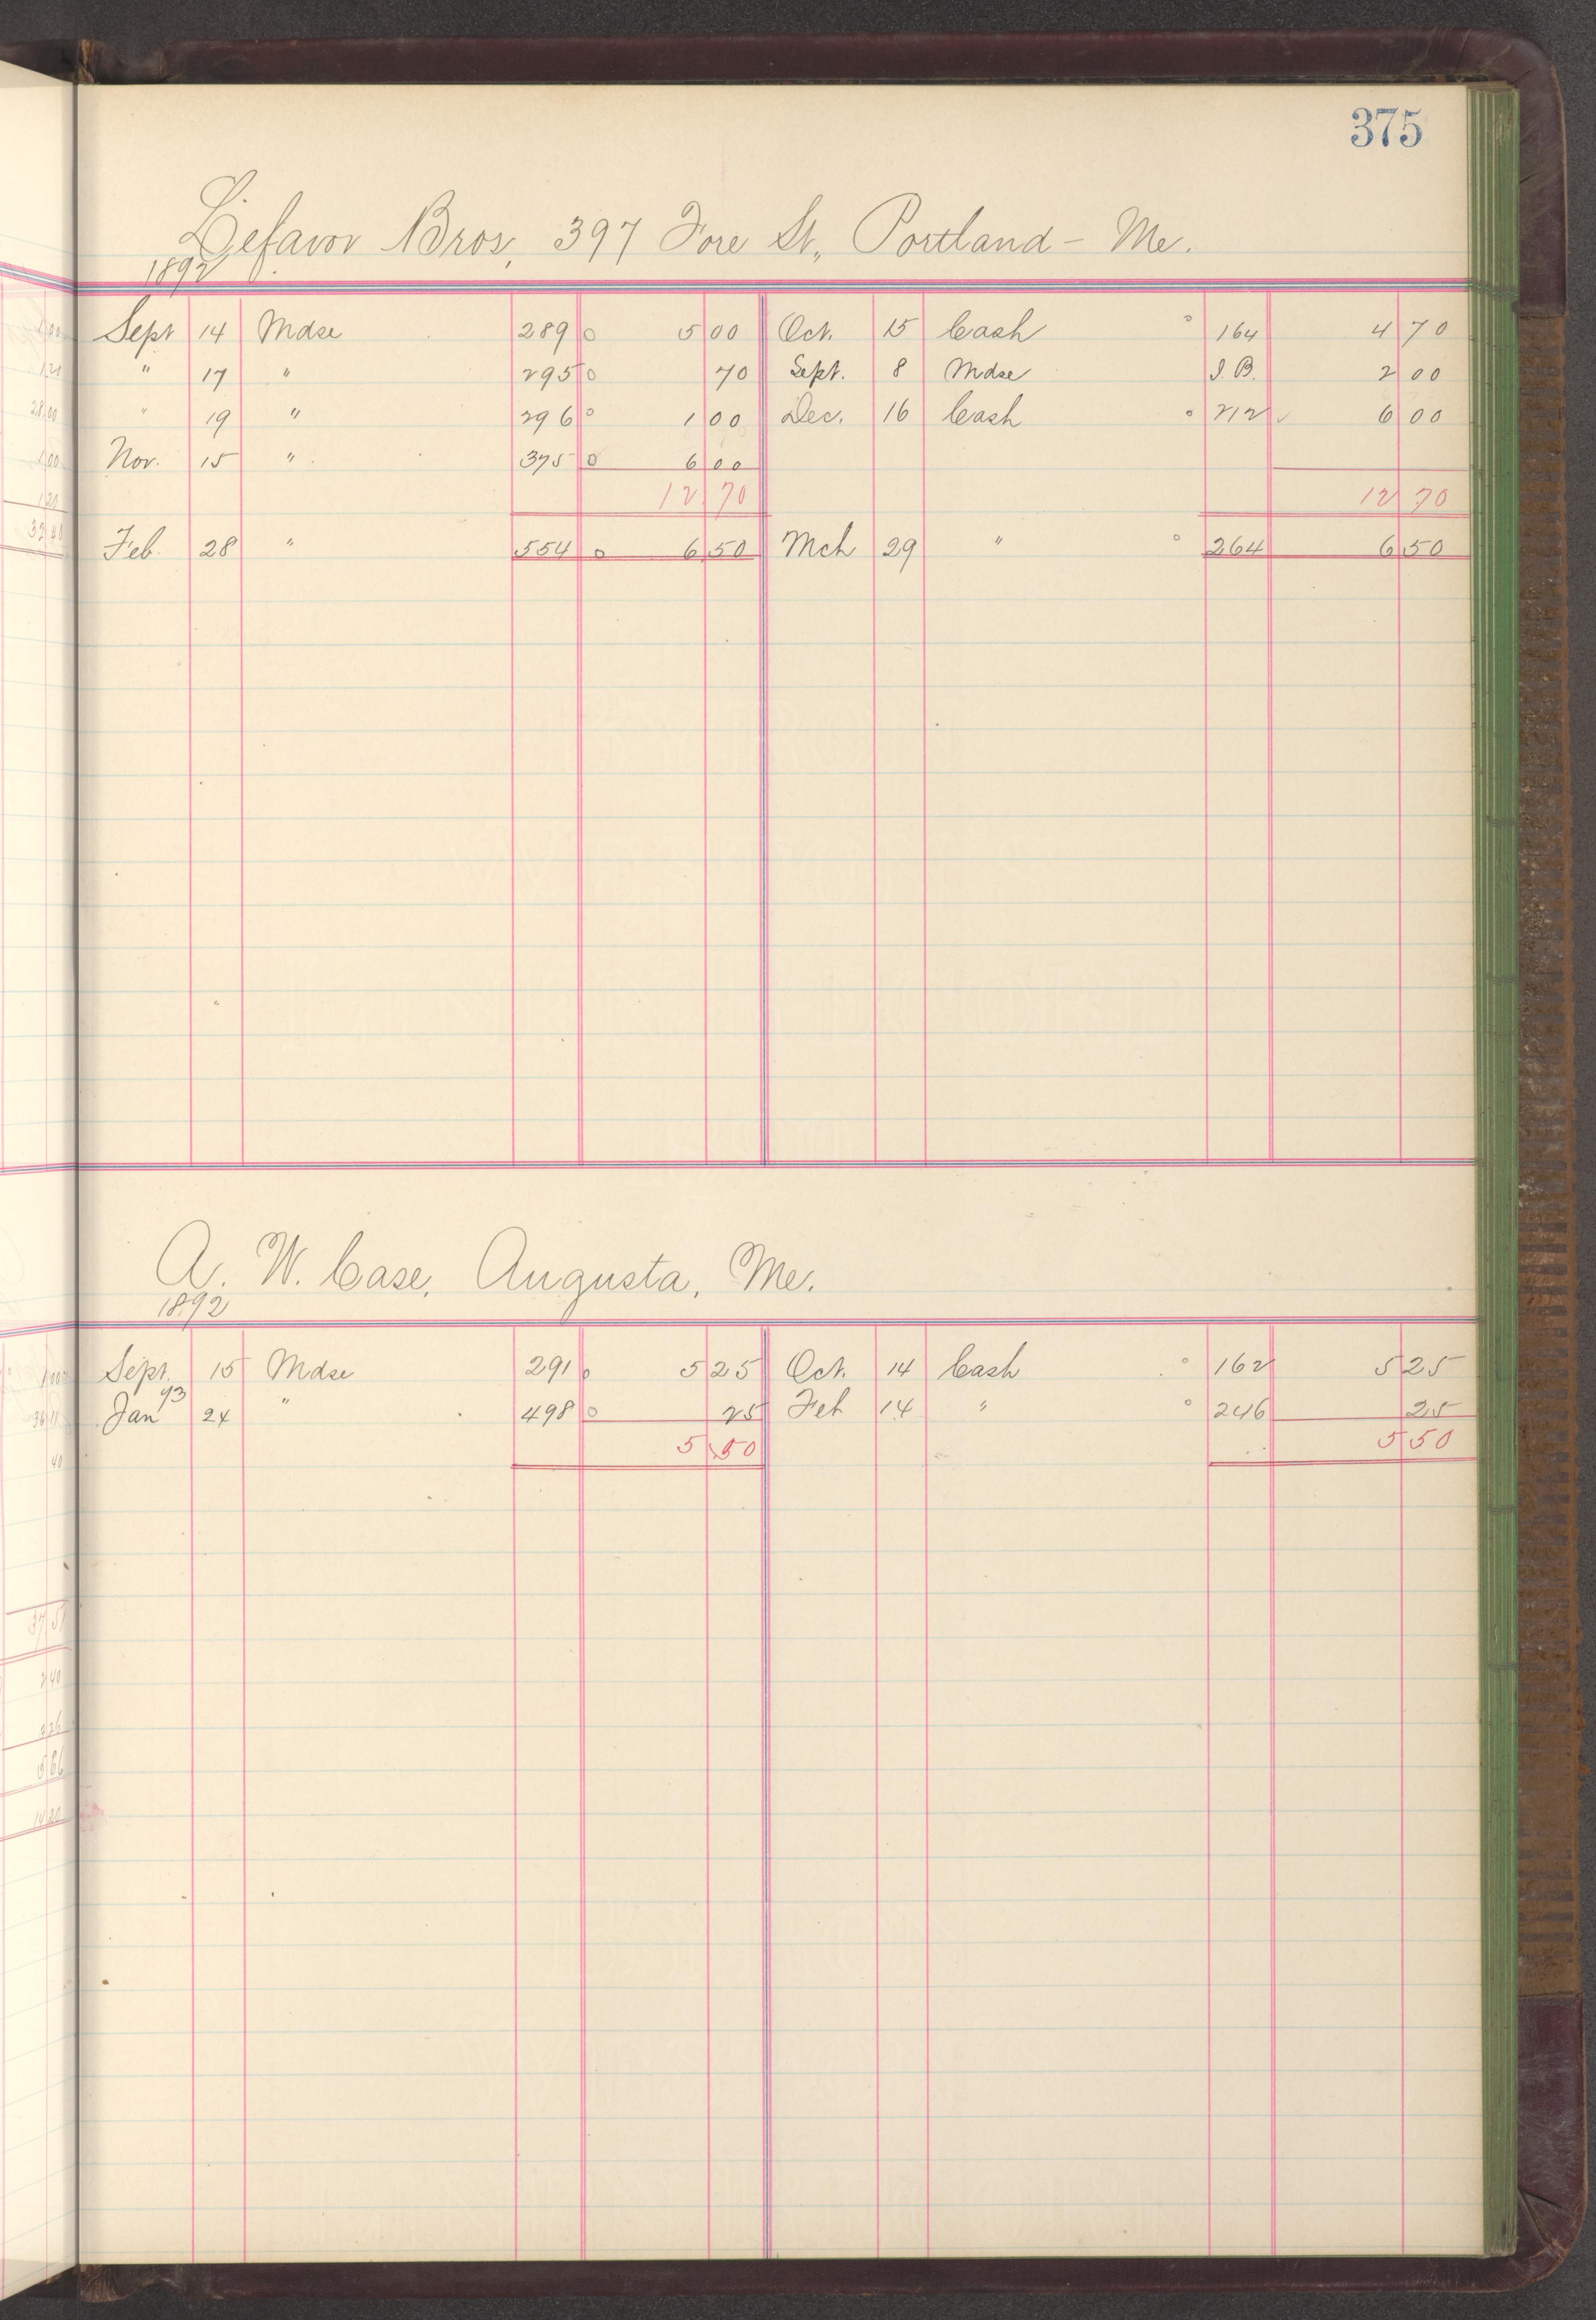 375
Lefavor Bros, 397 Fore St., Portland - Me.
1892
Sept 14 Mdse 289 5 00 Oct. 15 Cash 164 4 70
" 17 " 295 70 Sept. 8 Mdse I. B. 2 00
" 19 " 296 1 00 Dec. 16 Cash 212 6 00
Nov. 15 " 375 6 00
12 70 12 70
Feb. 28 " 554 6 50 Mch 29 " 264 6 50
A. W. Case, Augusta, Me.
1892
Sept. 15 Mdse 291 5 25 Oct. 14 Cash 162 5 25
Jan 93 24 " 498 25 Feb 14 " 246 25
5 50 5 50